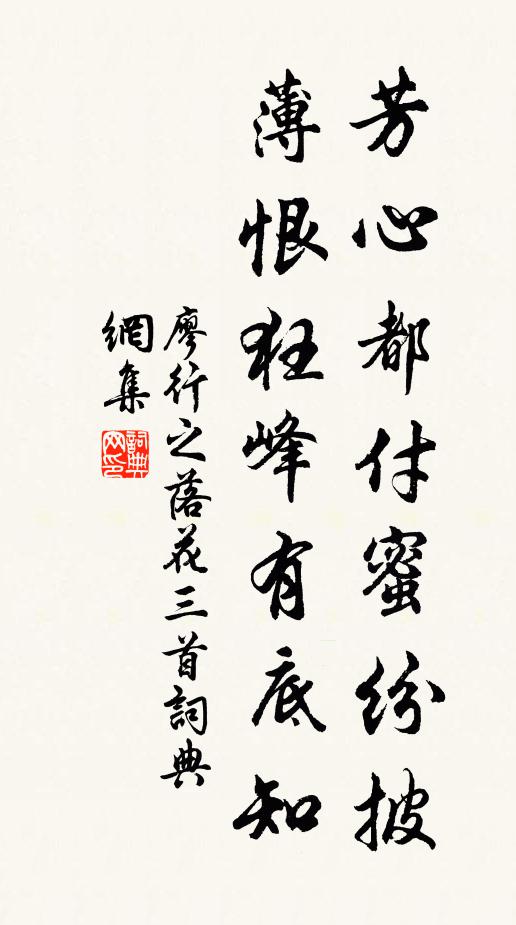 芳心都付蜜纷披
薄恨狂峰有底知
廖行之落花三首詞典
網集
詞典网印